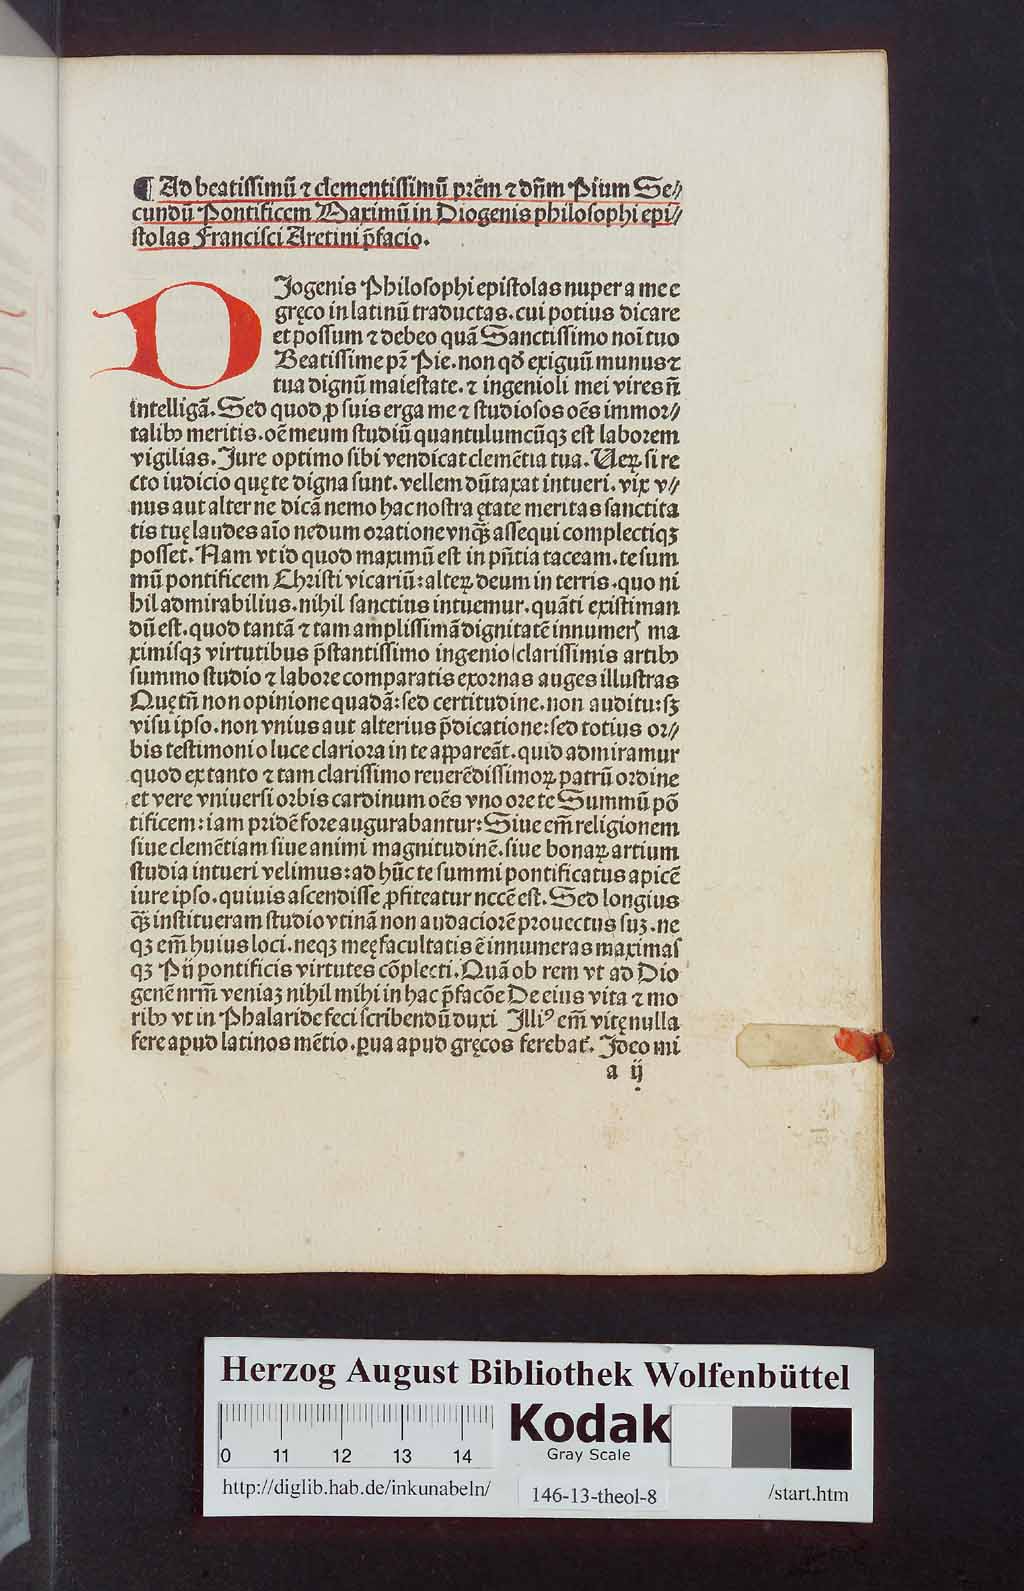 ¶ Ad beatissimū ⁊ clementissimū prēm ⁊ dn̄m Pium Se⸗
cundū Pontificem Maximū in Diogenis philosophi epi⸗
stolas Francisci Aretini p̄facio.
DIogenis Philosophi epistolas nuper a me e
gręco in latinū traductas. cui potius dicare
et possum ⁊ debeo quā Sanctissimo noī tuo
Beatissime pr̄ Pie. non qd̄ exiguū munus ⁊
tua dignū maiestate. ⁊ ingenioli mei vires n̄
intelligā. Sed quod ꝓ suis erga me ⁊ studiosos oēs immor⸗
talibꝰ meritis. oē meum studiū quantulumcūqꝫ est laborem
vigilias. Iure optimo sibi vendicat clemētia tua. Ueꝝ si re
cto iudicio quę te digna sunt. vellem dūtaxat intueri. vix v⸗
nus aut alter ne dicā nemo hac nostra ętate meritas sanctita
tis tuę laudes aīo nedum oratione vnqꝫ̄ assequi complectiqꝫ
posset. Nam vt id quod maximū est in pn̄tia taceam. te sum
mū pontificem Christi vicariū: alteꝝ deum in terris. quo ni
hil admirabilius. nihil sanctius intuemur. quāti existiman
dū est. quod tantā ⁊ tam amplissimā dignitatē innumerꝭ ma
ximisqꝫ virtutibus p̄stantissimo ingenio clarissimis artibꝰ
summo studio ⁊ labore comparatis exornas auges illustras
Quę tn̄ non opinione quadā: sed certitudine. non auditu: sꝫ
visu ipso. non vnius aut alterius p̄dicatione: sed totius or⸗
bis testimonio luce clariora in te appareāt. quid admiramur
quod ex tanto ⁊ tam clarissimo reuerēdissimoꝝ patrū ordine
et vere vniuersi orbis cardinum oēs vno ore te Summū pō
tificem: iam pridē fore augurabantur: Siue em̄ religionem
siue clemētiam siue animi magnitudinē. siue bonaꝝ artium
studia intueri velimus: ad hūc te summi pontificatus apicē
iure ipso. quiuis ascendisse ꝓfiteatur nccē est. Sed longius
qꝫ̄ institueram studio vtinā non audaciorē prouectus suꝫ. ne
qꝫ em̄ huius loci. neqꝫ meę facultatis ē innumeras maximas
qꝫ Pij pontificis virtutes cōplecti. Quā ob rem vt ad Dio
genē nrm̄ veniaꝫ nihil mihi in hac p̄facōe De eius vita ⁊ mo
ribꝰ vt in Phalaride feci scribendū duxi Illiꝰ em̄ vitę nulla
fere apud latinos mētio. ꝑua apud gręcos ferebat̄. Ideo mi
a ij
Herzog August Bibliothek Wolfenbüttel
0 11 12 13 14
Kodak
Gray Scale
http://diglib.hab.de/inkunabeln/
146-13-theol-8
/start.htm